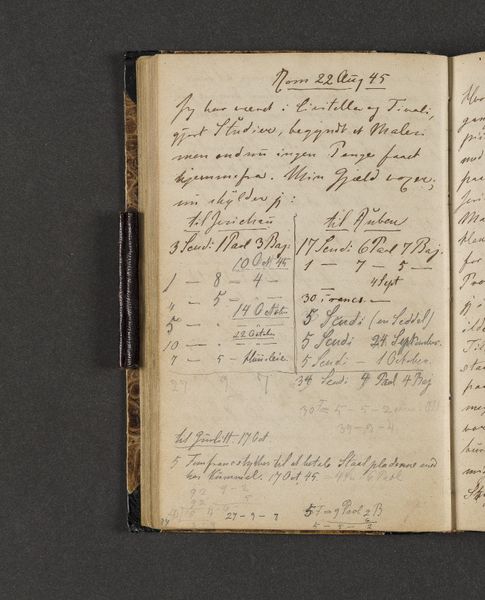 Rom 22 Aug 45
Jeg har været i Civitella og Tivoli,
gjort Studier, begyndt et Maleri
men endnu ingen Penge faaet
hjemmefra. Min Gjæld voxer,
nu skylder jeg:
til Jerichau
3 Scudi 1 Paol 3 Baj.
10 Oct 45
1 — 8 — 4 —
" — 5 —
14 Octbr
5 — . — . —
22 October
10 — — —
7 — 5 — Huusleie
27 9 7
til Ruben
17 Scudi 6 Paol 7 Baj.
1 — 7 — 5 —
4 Sept
30 Francs —
5 Scudi (en Seddel)
5 Scudi 24 September
5 Scudi — 1 October.
34 Scudi 4 Paol 4 Baj
30 = 5 — 5 — 2
39 — 9 — 4
til Gurlitt 17 Oct.
5 til at betale
hos Kümmel. 17 Oct 45
92 9 — 2
27 — 9 — 7
5 9 Paol 2 B
5 — 5 — 2